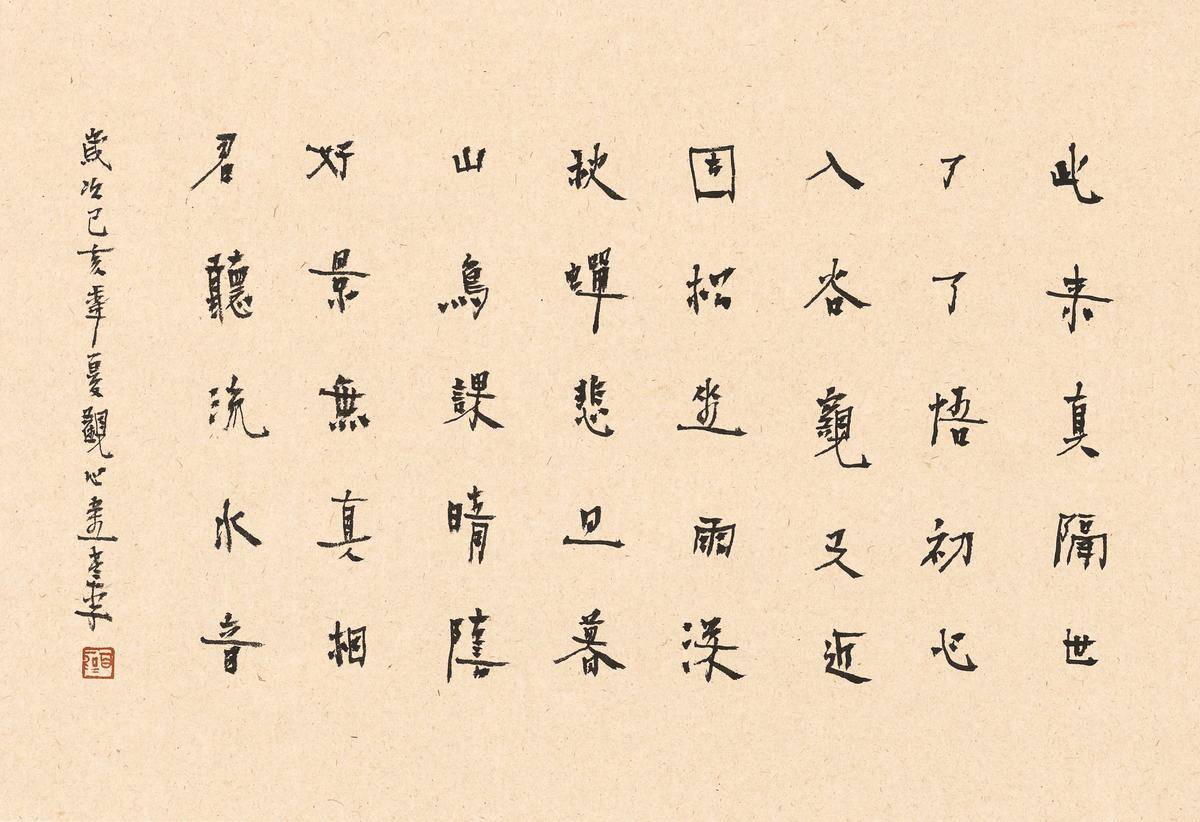 此来真隔世
了了悟初心
入谷親又近
固松坐雨深
秋蟬悲旦暮
山鳥課晴陰
好景無真相
君聽流水音
歲次己亥年夏觀心達